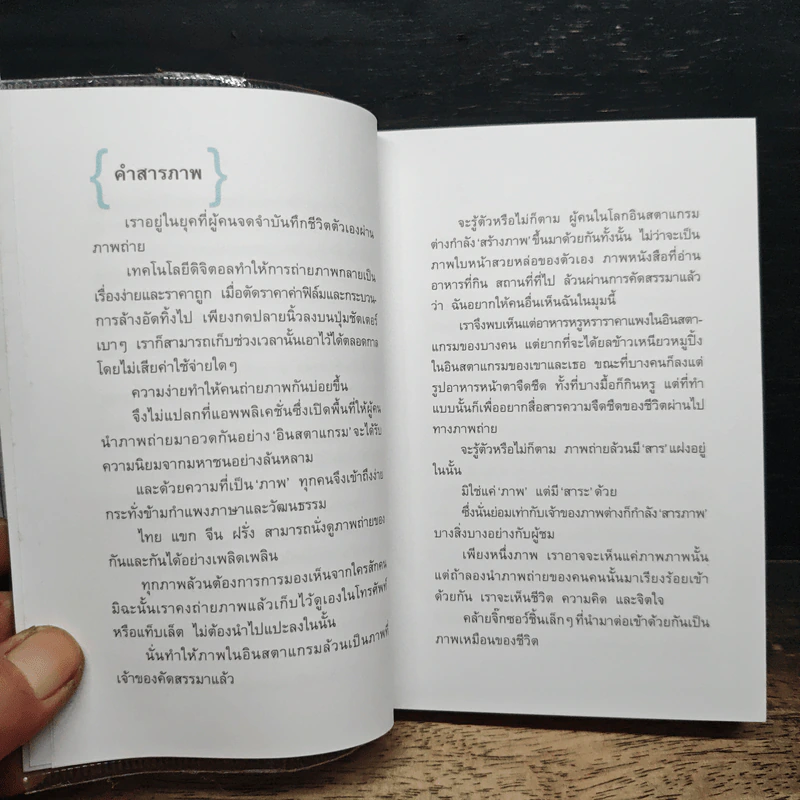 {คำสารภาพ}
เราอยู่ในยุคที่ผู้คนจดจำบันทึกชีวิตตัวเองผ่าน
ภาพถ่าย
เทคโนโลยีดิจิตอลทำให้การถ่ายภาพกลายเป็น
เรื่องง่ายและราคาถูก เมื่อตัดราคาค่าฟิล์มและกระบวน-
การล้างอัดทิ้งไป เพียงกดปลายนิ้วลงบนปุ่มชัตเตอร์
เบาๆ เราก็สามารถเก็บช่วงเวลานั้นเอาไว้ได้ตลอดกาล
โดยไม่เสียค่าใช้จ่ายใดๆ
ความง่ายทำให้คนถ่ายภาพกันบ่อยขึ้น
จึงไม่แปลกที่แอพพลิเคชั่นซึ่งเปิดพื้นที่ให้ผู้คน
นำภาพถ่ายมาอวดกันอย่าง 'อินสตาแกรม' จะได้รับ
ความนิยมจากมหาชนอย่างล้นหลาม
และด้วยความที่เป็น 'ภาพ' ทุกคนจึงเข้าถึงง่าย
กระทั่งข้ามกำแพงภาษาและวัฒนธรรม
ไทย แขก จีน ฝรั่ง สามารถนั่งดูภาพถ่ายของ
กันและกันได้อย่างเพลิดเพลิน
ทุกภาพล้วนต้องการการมองเห็นจากใครสักคน
มิฉะนั้นเราคงถ่ายภาพแล้วเก็บไว้ดูเองในโทรศัพท์
หรือแท็บเล็ต ไม่ต้องนำไปแปะลงในนั้น
นั่นทำให้ภาพในอินสตาแกรมล้วนเป็นภาพที่
เจ้าของคัดสรรมาแล้ว
จะรู้ตัวหรือไม่ก็ตาม ผู้คนในโลกอินสตาแกรม
ต่างกำลัง 'สร้างภาพ' ขึ้นมาด้วยกันทั้งนั้น ไม่ว่าจะเป็น
ภาพใบหน้าสวยหล่อของตัวเอง ภาพหนังสือที่อ่าน
อาหารที่กิน สถานที่ที่ไป ล้วนผ่านการคัดสรรมาแล้ว
ว่า ฉันอยากให้คนอื่นเห็นฉันในมุมนี้
เราจึงพบเห็นแต่อาหารหรูหราราคาแพงในอินสตา-
แกรมของบางคน แต่ยากที่จะได้ยลข้าวเหนียวหมูปิ้ง
ในอินสตาแกรมของเขาและเธอ ขณะที่บางคนก็ลงแต่
รูปอาหารหน้าตาจืดชืด ทั้งที่บางมื้อก็กินหรู แต่ที่ทำ
แบบนั้นก็เพื่ออยากสื่อสารความจืดชืดของชีวิตผ่านไป
ทางภาพถ่าย
จะรู้ตัวหรือไม่ก็ตาม ภาพถ่ายล้วนมี 'สาร' แฝงอยู่
ในนั้น
มิใช่แค่ 'ภาพ' แต่มี 'สาระ' ด้วย
ซึ่งนั่นย่อมเท่ากับเจ้าของภาพต่างก็กำลัง 'สารภาพ'
บางสิ่งบางอย่างกับผู้ชม
เพียงหนึ่งภาพ เราอาจจะเห็นแค่ภาพภาพนั้น
แต่ถ้าลองนำภาพถ่ายของคนคนนั้นมาเรียงร้อยเข้า
ด้วยกัน เราจะเห็นชีวิต ความคิด และจิตใจ
คล้ายจิ๊กซอว์ชิ้นเล็กๆ ที่นำมาต่อเข้าด้วยกันเป็น
ภาพเหมือนของชีวิต